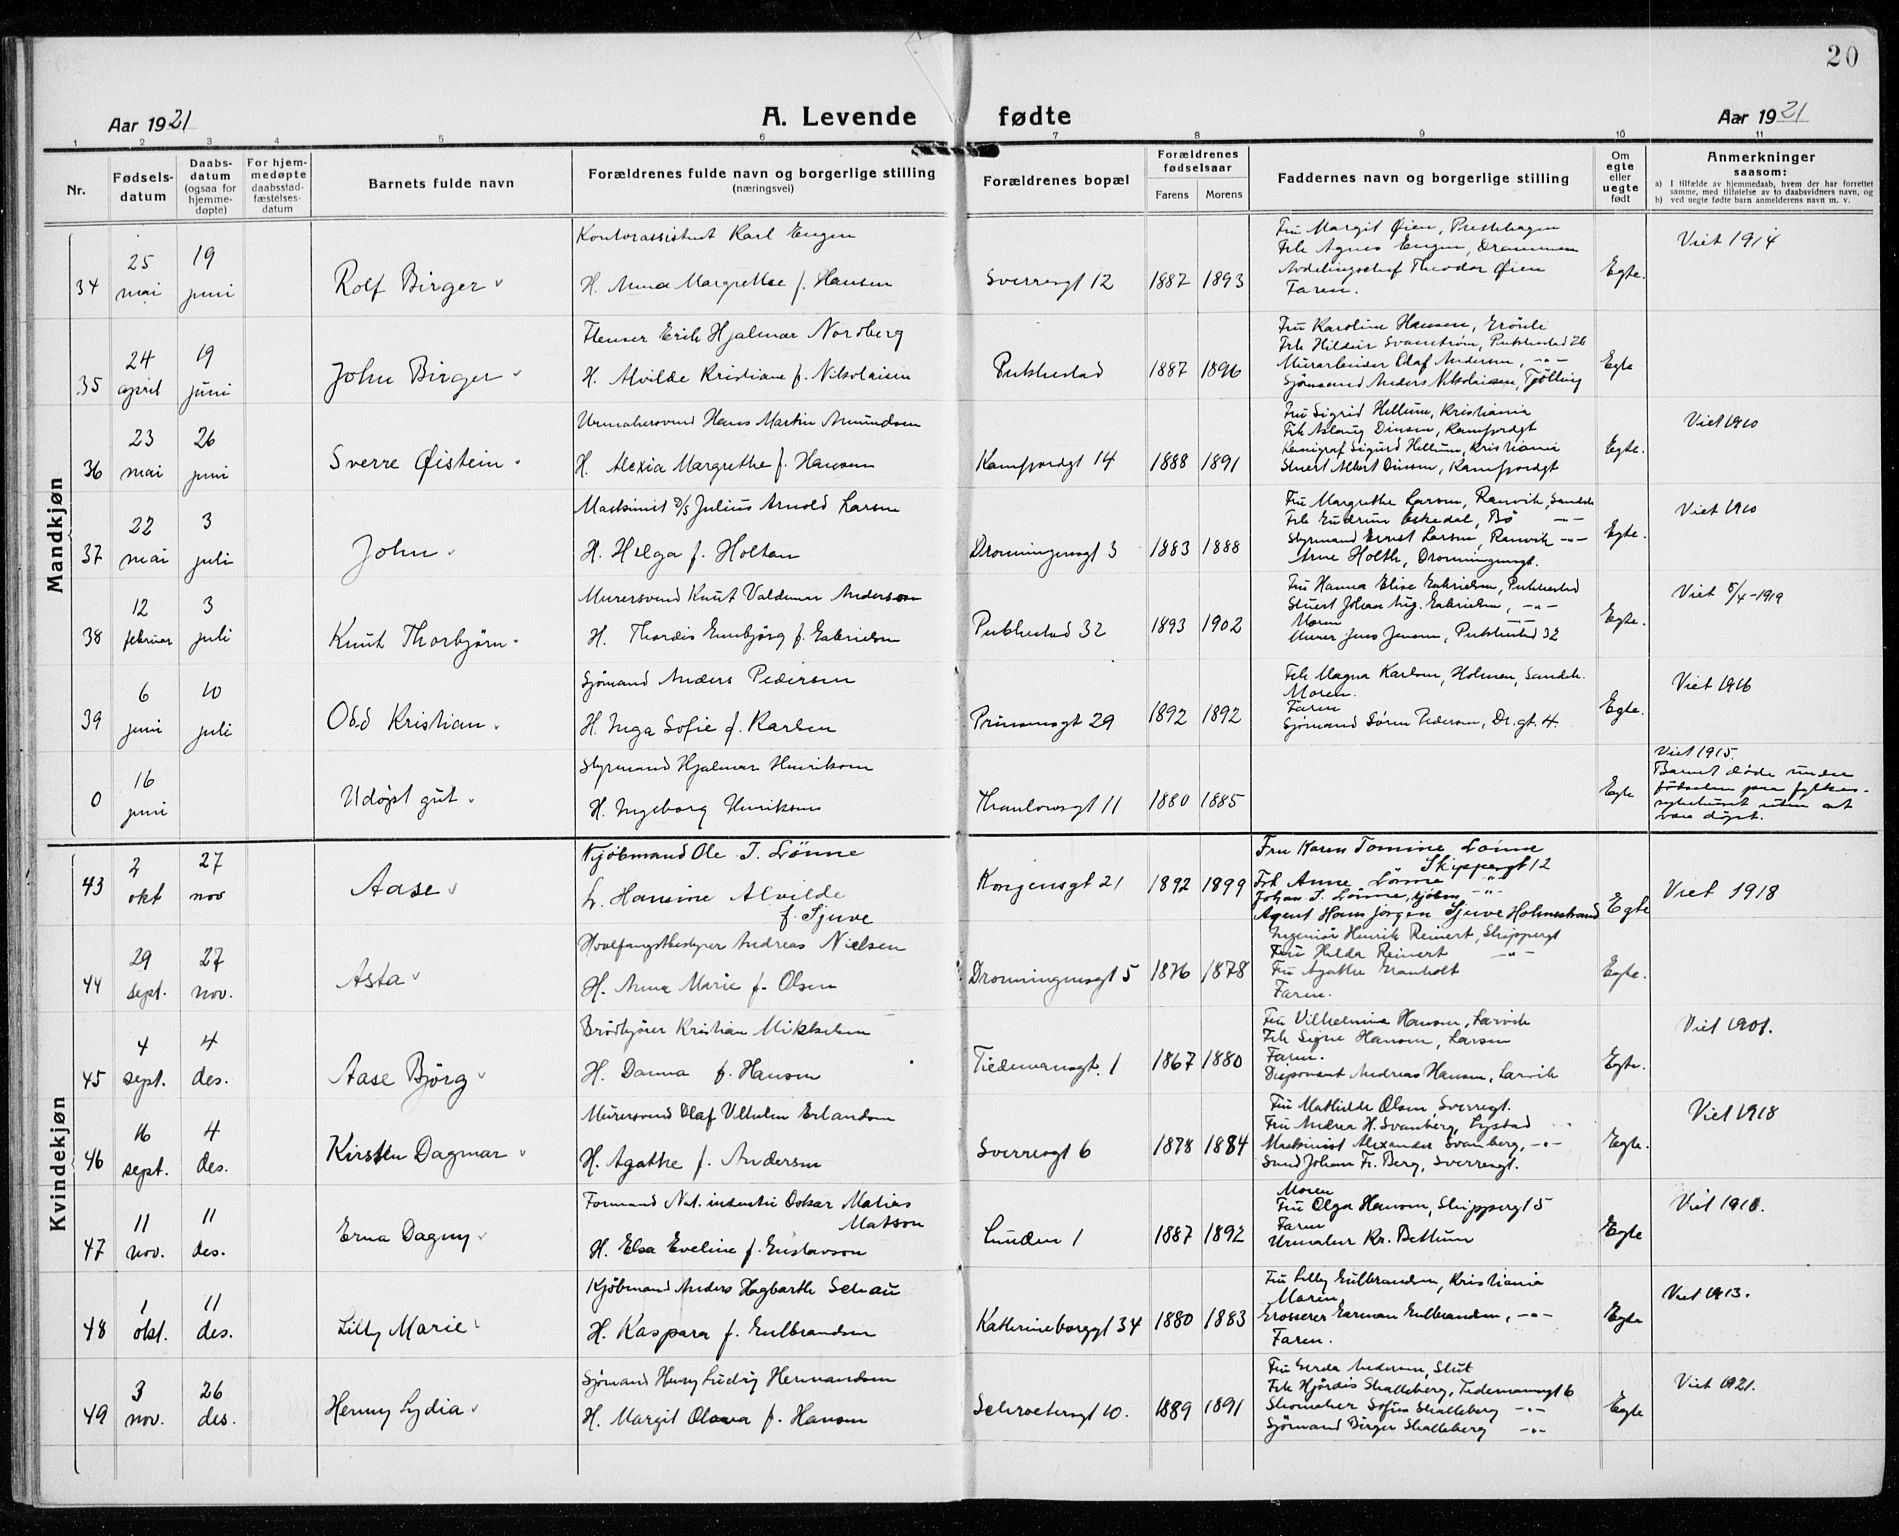 20
Aar 1921
A. Levende fødte
Aar 1921
1 2 3 4 5 6 7 8 9 10 11
Nr.
Fødsels-
datum
Daabs-
datum
(ogsaa for
hjemme-
døpte)
For hjem-
medøpte
daabsstad-
fæstelses-
datum
Barnets fulde navn
Forældrenes fulde navn og borgerlige stilling
(næringsvei)
Forældrenes bopæl
Forældrenes
fødselsaar
Farens
Morens
Faddernes navn og borgerlige stilling
Om
egte
eller
uegte
født
Anmerkninger
saasom:
a) I tilfælde av hjemmedaab, hvem der har forrettet
samme, med tilføielse av to daabsvidners navn, og
b) ved uegte fødte barn anmelderens navn m. v.
Mandkjøn
34
25
mai
19
juni
Rolf Birger
Kontorassistent Karl Engen
H. Anna Margrethe f. Hansen
Sverresgt 12
1887 1893
Fru Margit Øien, Prestehagen
Frk Agnes Engen, Drammen
Avdelingschef Theodor Øien
Faren.
Egte.
Viet 1914
35
24
april
19
juni
John Birger
Flenser Erik Hjalmar Nordberg
H. Alvilde Kristiane f. Nikolaisen
Pukkestad
1887 1896
Fru Karoline Hansen,
Frk Svanstrøm, Pukkestad 26
Murarbeider Olaf Andersen, -"-
Sjømand Anders Nikolaisen, Tjølling
Egte
36
23
mai
26
juni
Sverre Øistein
Urmakersvend Hans Martin Amundsen
H. Alexia Margrethe f. Hansen
Kamfjordgt 14
1888 1891
Fru Sigrid Hellum, Kristiania
Frk Aslaug Dinsen, Kamfjordgt
Kemigraf Sigurd Hellum, Kristiania
Stuert Albert Dinsen, Kamfjordgt
Egte.
Viet 1910
37
22
mai
3
juli
John
Maskinist D/S Julius Arnold Larsen
H. Helga f. Holtan
Dronningensgt 3
1883 1888
Fru Margrethe Larsen, Ranvik, Sandeh
Frk Gudrun Askedal, Bø -"-
Styrmand Ernst Larsen, Ranvik -"-
Arne Holth, Dronningensgt.
Egte.
Viet 1910
38
12
februar
3
juli
Knut Thorbjørn
Murersvend Knut Valdemar Anderson
H. Thordis Gunbjørg f. Gabrielsen
Pukkestad 32
1893 1902
Fru Hanna Elise Gabrielsen, Pukkestad
Stuert Johan Aug. Gabrielsen, -"-
Moren
Murer Jens Jensen, Pukkestad 32
Egte.
Viet 5/4-1919
39
6
juni
10
juli
Odd Kristian
Sjømand Anders Pedersen
H. Inga Sofie f. Karlsen
Prinsensgt 29
1892 1892
Frk Magna Karlsen, Holmen, Sandeh.
Moren.
Faren
Sjømand Søren Pedersen, Dr. gt. 4.
Egte.
Viet 1916
0
16
juni
Udøpt gut
Styrmand Hjalmar Henriksen
H. Ingeborg Henriksen
Thaulowsgt 11
1880 1885
Egte
Viet 1915.
Barnet døde under
fødselen paa fylkes-
sykehuset uten at
være døpt.
Kvindekjøn
43
2
okt
27
nov
Aase
Kjøbmand Ole T. Lønne
h. Hansine Alvilde
f. Sjuve
Kongensgt 21
1892 1899
Fru Karen Tomine Lønne
Skippergt 12
Frk Anne Lønne -"-
Johan T. Lønne, kjøbm -"-
Agent Hans Jørgen Sjuve Holmestrand
Egte
Viet 1918
44
29
sept.
27
nov.
Asta
Hvalfangstbestyrer Andreas Nielsen
H. Anna Marie f. Olsen
Dronningensgt 5
1876 1878
Ingeniør Henrik Reinert, Skippergt
Fru Hilda Reinert -"-
Fru Agathe Granholt
Faren.
Egte.
45
4
sept.
4
des.
Aase Bjørg
Brødkjører Kristian Mikkelsen
H. Danna f. Hansen
Tidemansgt. 1
1867 1880
Fru Vilhelmine Hansen, Larvik
Frk Signe Hansen, Larsen
Faren.
Disponent Andreas Hansen, Larvik
Egte.
Viet 1901.
46
16
sept.
4
des.
Kirsten Dagmar
Murersvend Olaf Vilhelm Erlandsen
H. Agathe f. Andersen
Sverresgt 6
1878 1884
Fru Mathilde Olsen, Sverregt.
Fru Andrea H. Svanberg, Lystad
Maskinist Alexander Svanberg, -"-
Svend Johan Fr. Berg, Sverresgt.
Egte.
Viet 1918
47
11
nov.
11
des.
Erna Dagny
Formand Nat. industri Oskar Matias
Matson
H. Elsa Eveline f. Gustavson
Lunden 1
1887 1892
Moren
Fru Olga Hansen, Skippergt 5
Faren
Urmaker Kr. Bettum
Egte
Viet 1911.
48
1
okt.
11
des.
Lilly Marie
Kjøbmand Anders Hagbarth Schau
H. Kaspara f. Gulbrandsen
Kathrineborggt 34
1880 1883
Fru Lilly Gulbrandsen, Kristiania
Moren
Grosserer Herman Gulbrandsen, -"-
Faren.
Egte
Viet 1913.
49
3
nov.
26
des.
Henny Lydia
Sjømand Henry Ludvig Hermandsen
H. Margit Olava f. Hansen
Schrøtersgt 10.
1889 1891
Fru Gerda Andersen, Slut
Frk Hjørdis Skalleberg, Tidemannsgt 6
Skomaker Sofus Skalleberg -"-
Sjømand Birger Skalleberg -"-
Egte
Viet 1921.